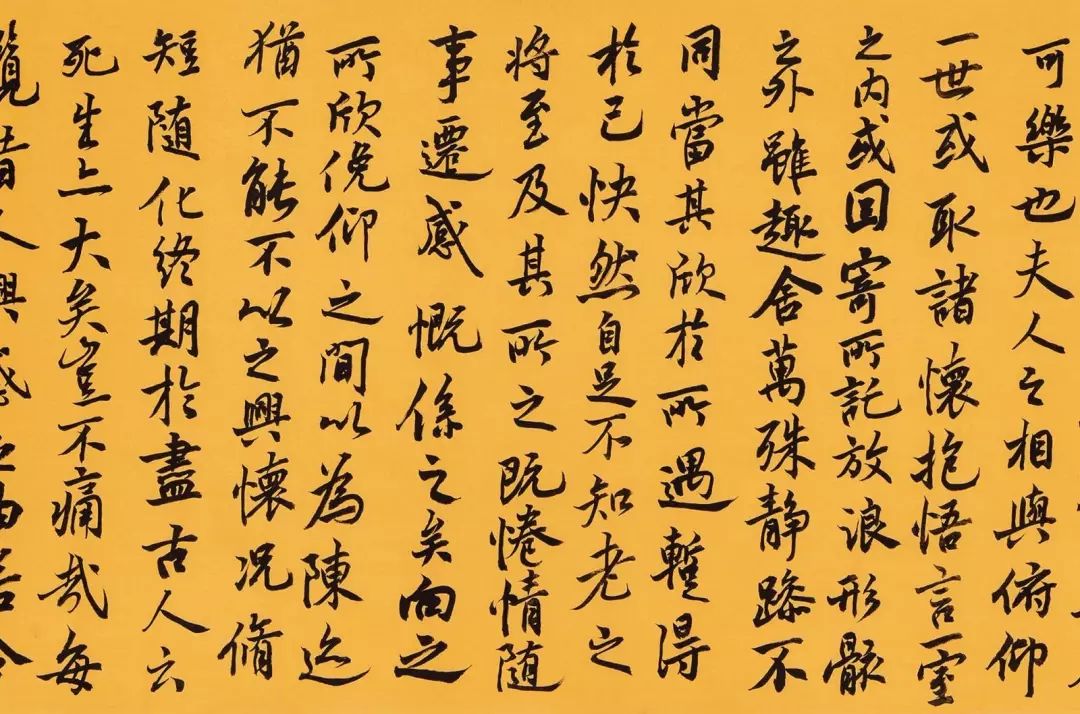 可樂也夫人之相與俯仰
一世或取諸懷抱悟言一室
之内或因寄所託放浪形骸
之外雖趣舍萬殊静躁不
同當其欣於所遇暫得
於己快然自足不知老之
将至及其所之既惓情随
事遷感慨係之矣向之
所欣俛仰之間以為陳迹
猶不能不以之興懷况脩
短随化終期於盡古人云
死生亦大矣豈不痛哉每
覽昔人興感之由若合